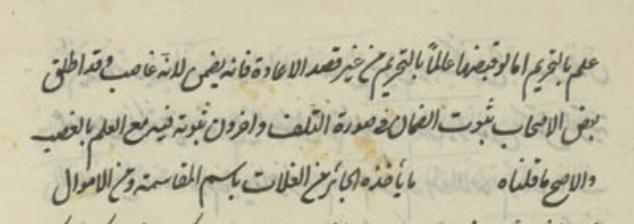 علم بالتحريم اما لو قبضها عالماً بالتحريم من غير قصد الاعادة فانه يضمن لانه غاصب وقد اطلق
بعض الاصحاب ثبوت الضمان في صورة التلف واخرون ثبوته فيه مع العلم بالغصب
والاصح ما قلناه ما يأخذه الجائر من الغلات باسم المقاسمة ومن الاموال